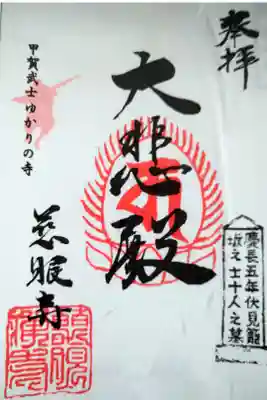 奉拝
大悲殿
慶長五年伏見籠
城之士十人之墓
甲賀武士ゆかりの寺
慈眼寺